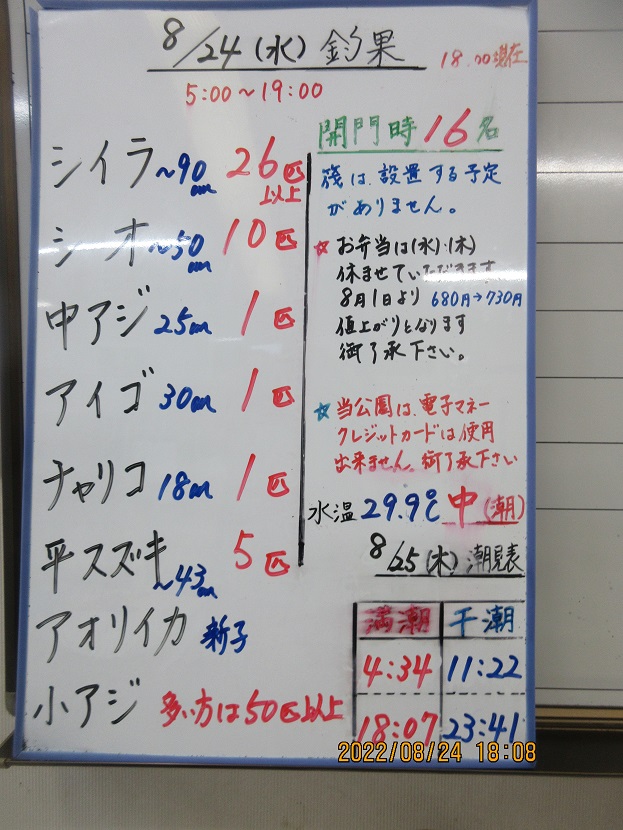 8/24(水) 釣果
18:00現在
5:00〜19:00
シイラ 〜90cm 26匹以上
シオ 〜50cm 10匹
中アジ 25cm 1匹
アイゴ 30cm 1匹
チャリコ 18cm 1匹
平スズキ 〜43cm 5匹
アオリイカ 新子
小アジ 多い方は50匹以上
開門時16名
筏は、設置する予定
がありません。
☆ お弁当は(水)・(木)
休ませていただきます
8月1日より 680円→730円
値上がりとなります
御了承下さい。
☆ 当公園は、電子マネー
クレジットカードは使用
出来ません。御了承下さい
水温 29.9℃ 中(潮)
8/25(木) 潮見表
満潮 干潮
4:34 11:22
18:07 23:41
2022/08/24 18:08